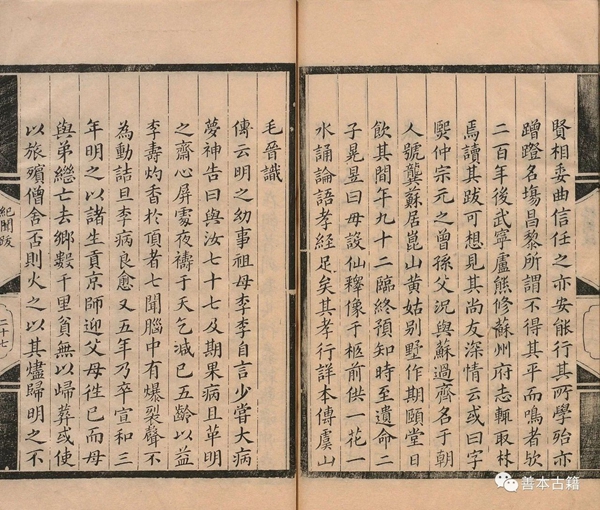 賢相委曲信任之亦安能行其所學殆亦
蹭蹬名塲昌黎所謂不得其平而鳴者歟
二百年後武寧盧熊修蘇州府志輒取林
焉讀其跋可想見其尚友深情云或曰字
熙仲宗元之曾孫父況與蘇過齊名于朝
人號龔蘇居崑山黃姑别墅作期頤堂日
飲其間年九十二臨終預知時至遺命二
子晃昱曰毋設仙釋像于柩前供一花一
水誦論語孝經足矣其孝行詳本傳虞山
毛晉識
傳云明之幼事祖母李李自言少嘗大病
夢神告曰與汝七十七及期果病且革明
之齋心屏處夜禱于天乞減已五齡以益
李壽灼香於頂者七聞腦中有爆裂聲不
為動詰旦李病良愈又五年乃卒宣和三
年明之以諸生貢京師迎父母徃已而母
與弟繼亡去鄉數千里貧無以歸葬或使
以旅殯僧舍否則火之以其燼歸明之不
紀聞跋
二十七
善本古籍